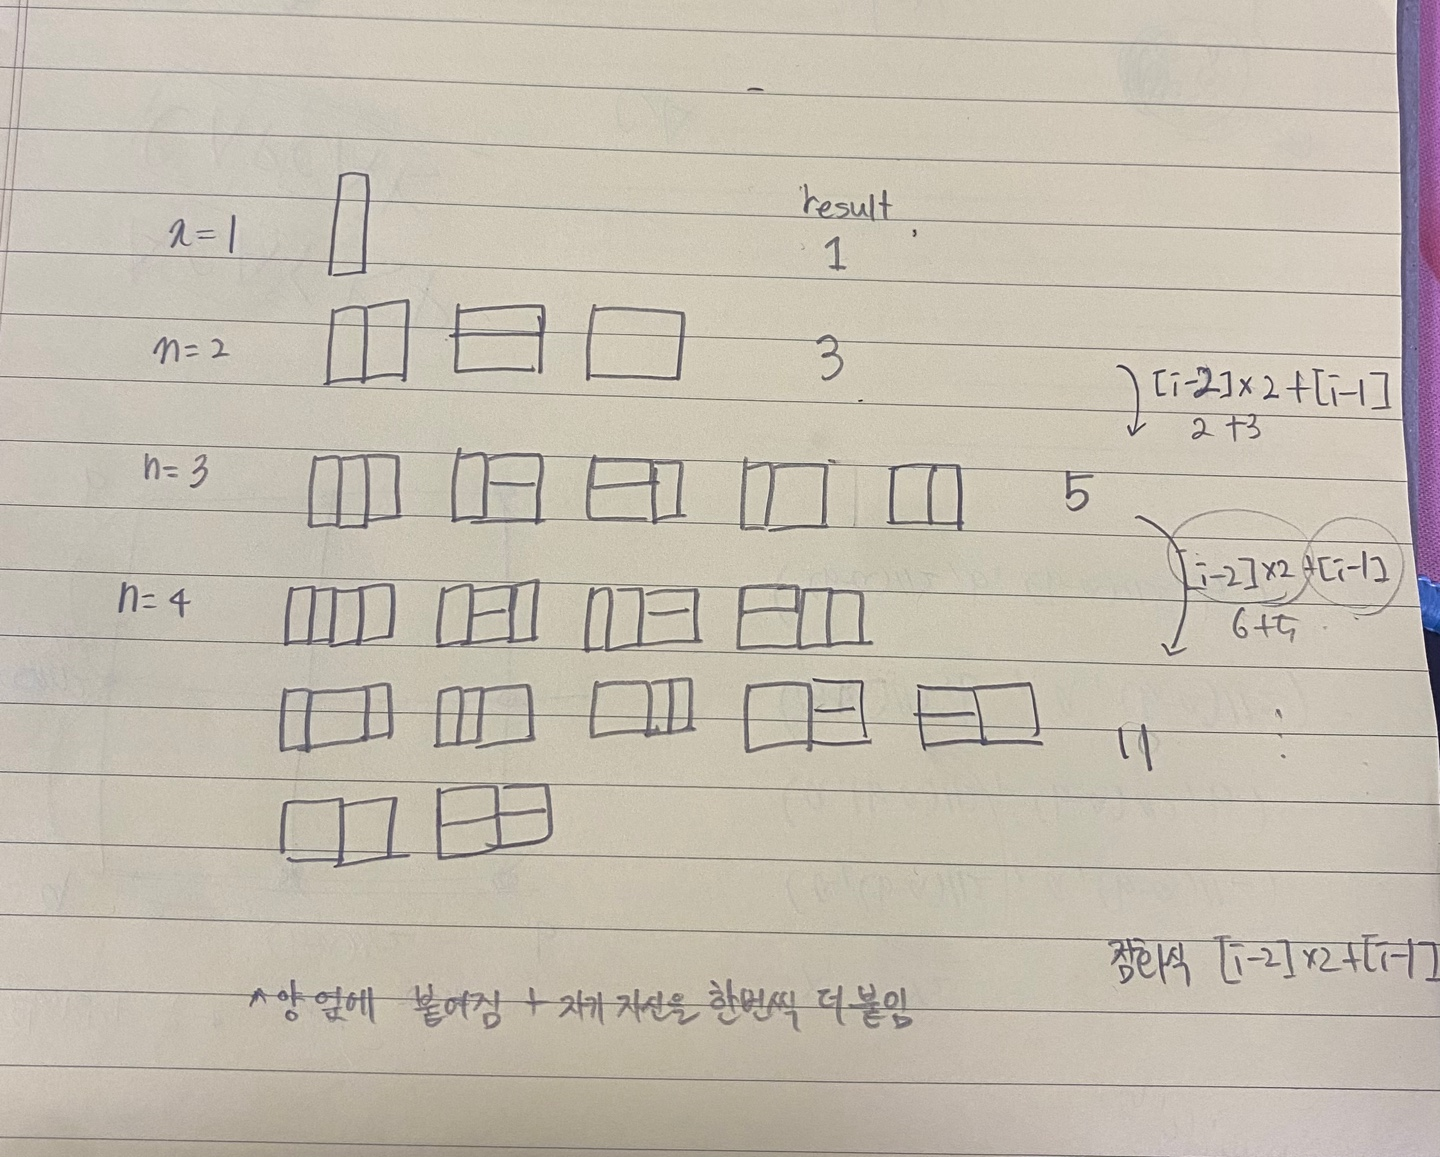 result
n=1 1
n=2 3
[i-2]×2+[i-1]
2+3
n=3 5
[i-2]×2+[i-1]
n=4
6+5
11
점화식 [i-2]×2+[i-1]
*양 옆에 붙여짐 + 자기 자신을 한번씩 더 붙임